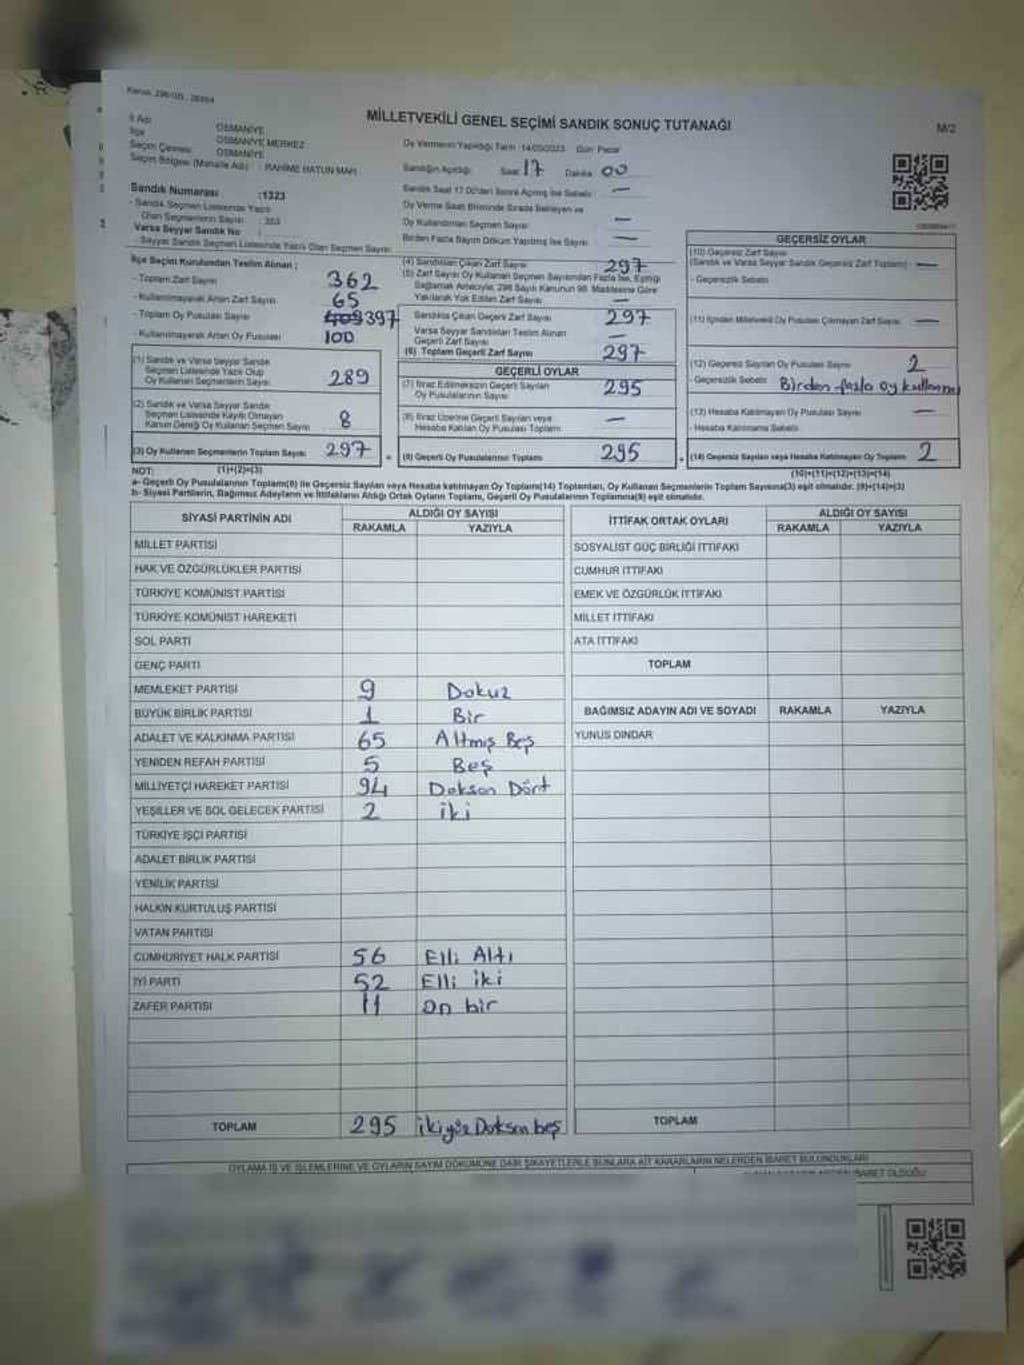 MİLLETVEKİLİ GENEL SEÇİMİ SANDIK SONUÇ TUTANAĞI
M/2
İl Adı OSMANİYE
İlçe OSMANİYE MERKEZ
Seçim Çevresi OSMANİYE
Seçim Bölgesi (Mahalle Adı) : RAHİME HATUN MAH
Oy Vermenin Yapıldığı Tarih :14/05/2023 Gün: Pazar
Sandığın Açıldığı: Saat 17 Dakika 00
Sandık Numarası :1323
Sandık Saat 17.00'den Sonra Açılmış İse Sebebi: —
- Sandık Seçmen Listesinde Yazılı
Olan Seçmenlerin Sayısı : 353
Oy Verme Saati Bitiminde Sırada Bekleyen ve
Oy Kullandırılan Seçmen Sayısı: —
Varsa Seyyar Sandık No :
- Seyyar Sandık Seçmen Listesinde Yazılı Olan Seçmen Sayısı:
Birden Fazla Sayım Döküm Yapılmış İse Sayısı: —
İlçe Seçim Kurulundan Teslim Alınan ;
- Toplam Zarf Sayısı 362
- Kullanılmayarak Artan Zarf Sayısı 65
- Toplam Oy Pusulası Sayısı 397
- Kullanılmayarak Artan Oy Pusulası 100
(1) Sandık ve Varsa Seyyar Sandık
Seçmen Listesinde Yazılı Olup
Oy Kullanan Seçmenlerin Sayısı 289
(2) Sandık ve Varsa Seyyar Sandık
Seçmen Listesinde Kaydı Olmayan
Kanun Gereği Oy Kullanan Seçmen Sayısı 8
(3) Oy Kullanan Seçmenlerin Toplam Sayısı 297
(1)+(2)=(3)
(4) Sandıktan Çıkan Zarf Sayısı 297
(5) Zarf Sayısı Oy Kullanan Seçmen Sayısından Fazla İse, Eşitliği
Sağlamak Amacıyla, 298 Sayılı Kanunun 98. Maddesine Göre
Yakılarak Yok Edilen Zarf Sayısı —
Sandıkta Çıkan Geçerli Zarf Sayısı 297
Varsa Seyyar Sandıktan Teslim Alınan
Geçerli Zarf Sayısı
(6) Toplam Geçerli Zarf Sayısı 297
GEÇERLİ OYLAR
(7) İtiraz Edilmeksizin Geçerli Sayılan
Oy Pusulalarının Sayısı 295
(8) İtiraz Üzerine Geçerli Sayılan veya
Hesaba Katılan Oy Pusulası Toplamı —
(9) Geçerli Oy Pusulalarının Toplamı 295
GEÇERSİZ OYLAR
(10) Geçersiz Zarf Sayısı
(Sandık ve Varsa Seyyar Sandık Geçersiz Zarf Toplamı) —
- Geçersizlik Sebebi
(11) İçinden Milletvekili Oy Pusulası Çıkmayan Zarf Sayısı —
(12) Geçersiz Sayılan Oy Pusulası Sayısı 2
- Geçersizlik Sebebi Birden fazla oy kullanma
(13) Hesaba Katılmayan Oy Pusulası Sayısı —
- Hesaba Katılmama Sebebi
(14) Geçersiz Sayılan veya Hesaba Katılmayan Oy Toplamı 2
(10)+(11)+(12)+(13)=(14)
NOT:
a- Geçerli Oy Pusulalarının Toplamı(9) ile Geçersiz Sayılan veya Hesaba katılmayan Oy Toplamı(14) Toplamları, Oy Kullanan Seçmenlerin Toplam Sayısına(3) eşit olmalıdır. (9)+(14)=(3)
b- Siyasi Partilerin, Bağımsız Adayların ve İttifakların Aldığı Ortak Oyların Toplamı, Geçerli Oy Pusulalarının Toplamına(9) eşit olmalıdır.
SİYASİ PARTİNİN ADI ALDIĞI OY SAYISI
RAKAMLA YAZIYLA
MİLLET PARTİSİ
HAK VE ÖZGÜRLÜKLER PARTİSİ
TÜRKİYE KOMÜNİST PARTİSİ
TÜRKİYE KOMÜNİST HAREKETİ
SOL PARTİ
GENÇ PARTİ
MEMLEKET PARTİSİ 9 Dokuz
BÜYÜK BİRLİK PARTİSİ 1 Bir
ADALET VE KALKINMA PARTİSİ 65 Altmış Beş
YENİDEN REFAH PARTİSİ 5 Beş
MİLLİYETÇİ HAREKET PARTİSİ 94 Doksan Dört
YEŞİLLER VE SOL GELECEK PARTİSİ 2 iki
TÜRKİYE İŞÇİ PARTİSİ
ADALET BİRLİK PARTİSİ
YENİLİK PARTİSİ
HALKIN KURTULUŞ PARTİSİ
VATAN PARTİSİ
CUMHURİYET HALK PARTİSİ 56 Elli Altı
İYİ PARTİ 52 Elli iki
ZAFER PARTİSİ 11 On bir
TOPLAM 295 ikiyüz Doksan beş
İTTİFAK ORTAK OYLARI ALDIĞI OY SAYISI
RAKAMLA YAZIYLA
SOSYALİST GÜÇ BİRLİĞİ İTTİFAKI
CUMHUR İTTİFAKI
EMEK VE ÖZGÜRLÜK İTTİFAKI
MİLLET İTTİFAKI
ATA İTTİFAKI
TOPLAM
BAĞIMSIZ ADAYIN ADI VE SOYADI RAKAMLA YAZIYLA
YUNUS DİNDAR
TOPLAM
OYLAMA İŞ VE İŞLEMLERİNE VE OYLARIN SAYIM DÖKÜMÜNE DAİR ŞİKAYETLERLE BUNLARA AİT KARARLARIN NELERDEN İBARET BULUNDUKLARI